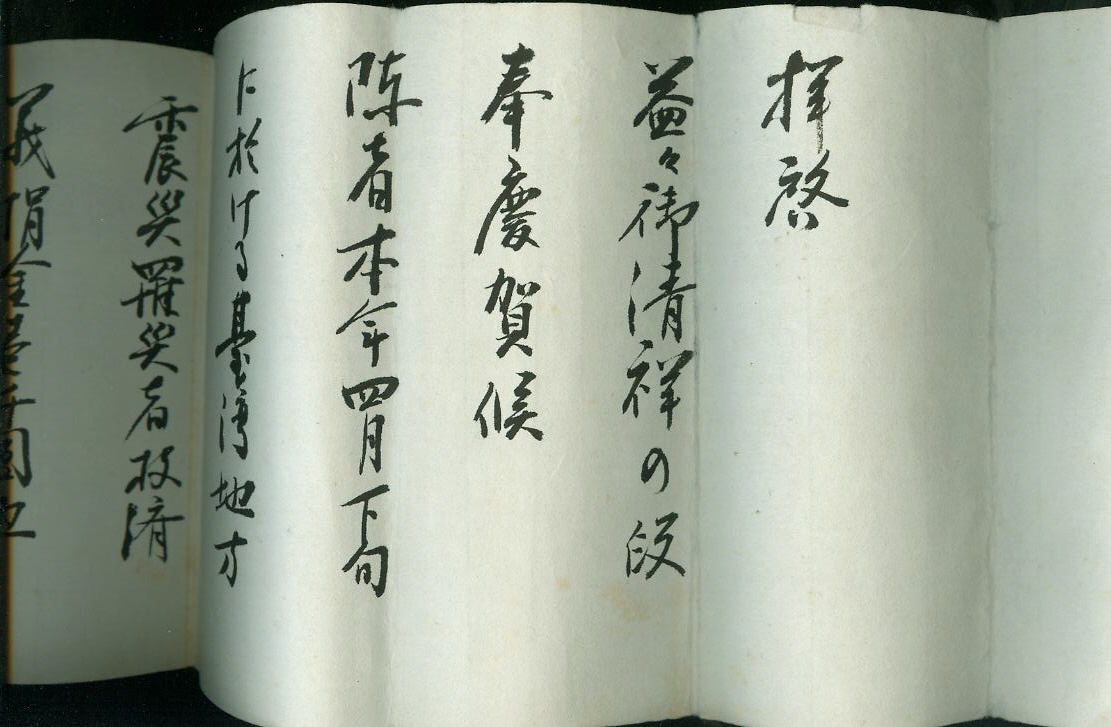 拝啓
益々御清祥の段
奉慶賀候
陳者本年四月下旬
に於ける臺湾地方
震災罹災者救済
義捐金壹千圓也